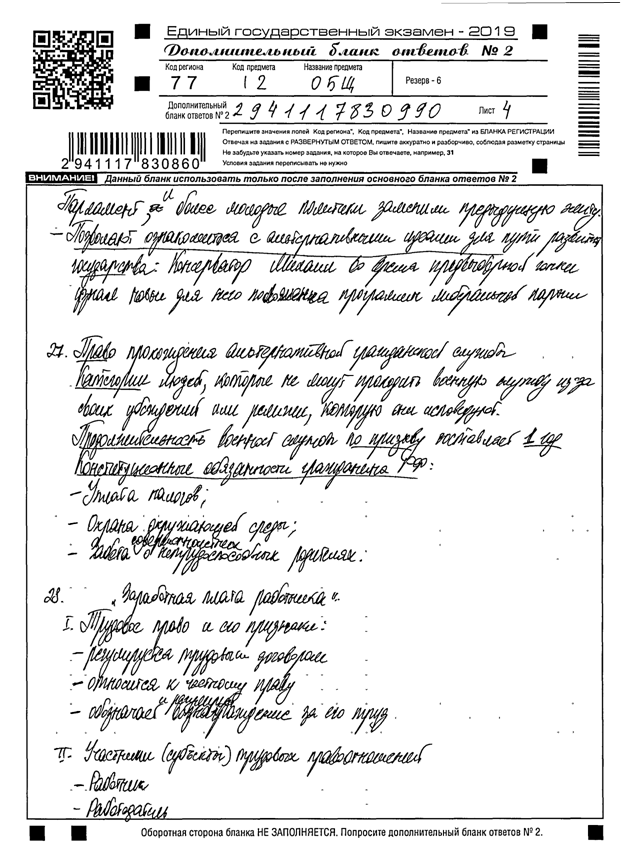 Единый государственный экзамен - 2019
Дополнительный бланк ответов № 2
Код региона Код предмета Название предмета
77 12 ОБЩ Резерв - 6
Дополнительный
бланк ответов № 2 2941117830990 Лист 4
Перепишите значения полей "Код региона", "Код предмета", "Название предмета" из БЛАНКА РЕГИСТРАЦИИ
Отвечая на задания с РАЗВЕРНУТЫМ ОТВЕТОМ, пишите аккуратно и разборчиво, соблюдая разметку страницы
Не забудьте указать номер задания, на которое Вы отвечаете, например, 31
Условия задания переписывать не нужно
2 941117 830860
ВНИМАНИЕ! Данный бланк использовать только после заполнения основного бланка ответов № 2
Парламент, и более молодые политики заменили предыдущую
- Позволяют ознакомиться с альтернативными идеями для пути развития
государства: Консерватор Михаил во время предвыборной гонки
узнал новые для него положения программы либеральной партии
27. Право прохождения альтернативной гражданской службы
Категории людей, которые не могут проходить военную службу из-за
своих убеждений или религии, которую они исповедуют.
Продолжительность военной службы по призыву составляет 1 год
Конституционные обязанности гражданина РФ:
- Уплата налогов;
- Охрана окружающей среды;
- Забота о нетрудоспособных родителях.
28. "Заработная плата работника".
I. Трудовое право и его признаки:
- регулируется трудовым договором
- относится к частному праву
- обозначает и вознаграждение за его труд
II. Участники (субъекты) трудовых правоотношений
- Работник
- Работодатель
Оборотная сторона бланка НЕ ЗАПОЛНЯЕТСЯ. Попросите дополнительный бланк ответов № 2.